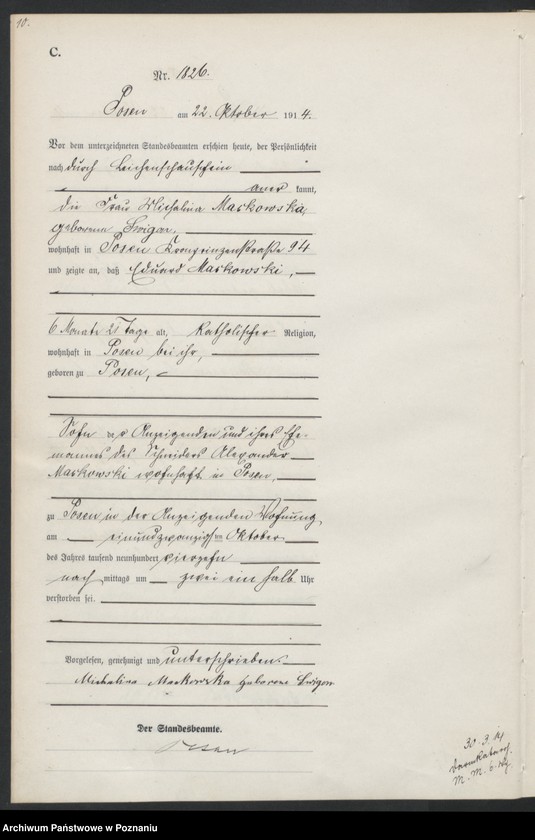 10.
C.
Nr. 1826.
Posen am 22. Oktober 1914.
Vor dem unterzeichneten Standesbeamten erschien heute, der Persönlichkeit
nach durch Leichenschauschein
aner kannt,
die Frau Michalina Markowska,
geborene
wohnhaft in Posen Kronprinzenstraße 94
und zeigte an, daß Eduard Markowski,
6 Monate 21 Tage alt, katholischer Religion,
wohnhaft in Posen bei ihr,
geboren zu Posen,
Sohn der Anzeigenden und ihres Ehe-
mannes des Schneiders Alexander
Markowski wohnhaft in Posen,
zu Posen in der Anzeigenden Wohnung,
am einundzwanzigsten Oktober
des Jahres tausend neunhundert vierzehn
nach mittags um zwei ein halb Uhr
verstorben sei.
Vorgelesen, genehmigt und unterschrieben.
Michalina Markowska geborene
Der Standesbeamte.
30. 3. 14
Archiwum Państwowe w Poznaniu